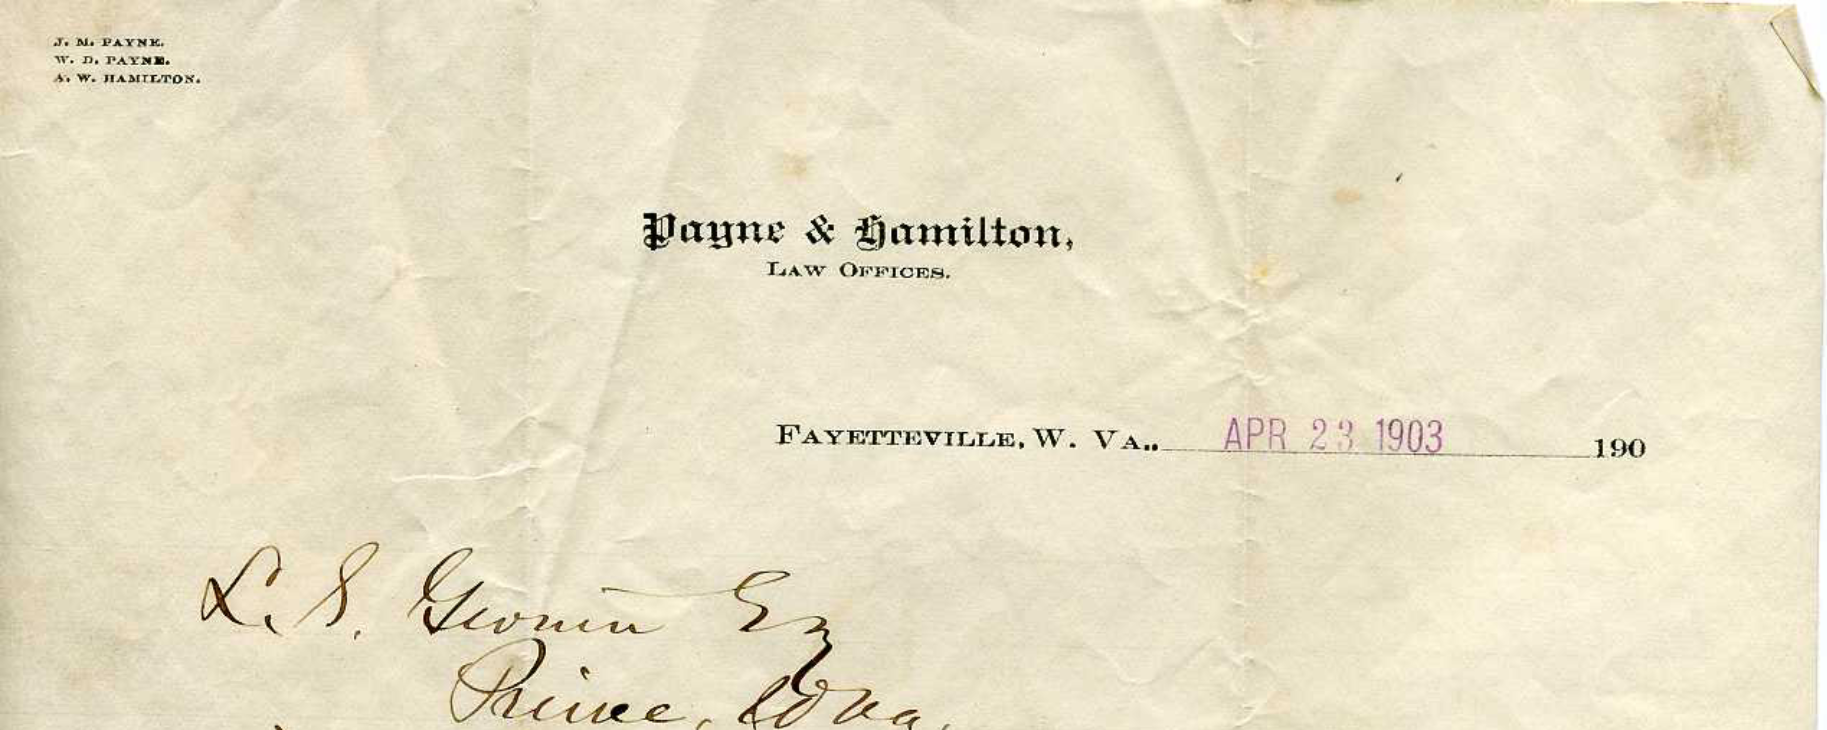 J. M. PAYNE.
W. D. PAYNE.
A. W. HAMILTON.
Payne & Hamilton,
LAW OFFICES.
FAYETTEVILLE, W. VA., APR 23 1903 190
L. S. Esq
Prince, W Va,